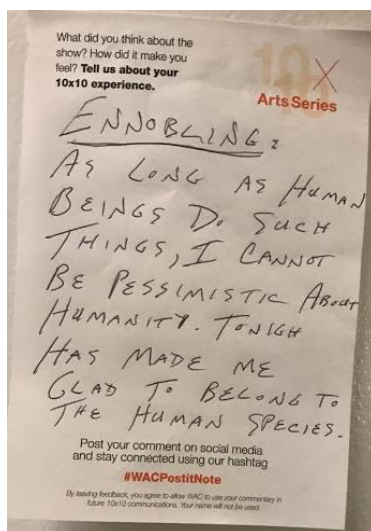 What did you think about the
show? How did it make you
feel? Tell us about your
10x10 experience.
10x10
Arts Series
ENNOBLING:
AS LONG AS HUMAN
BEINGS DO SUCH
THINGS, I CANNOT
BE PESSIMISTIC ABOUT
HUMANITY. TONIGH
HAS MADE ME
GLAD TO BELONG TO
THE HUMAN SPECIES.
Post your comment on social media
and stay connected using our hashtag
#WACPostitNote
By leaving feedback, you agree to allow WAC to use your commentary in
future 10x10 communications. Your name will not be used.